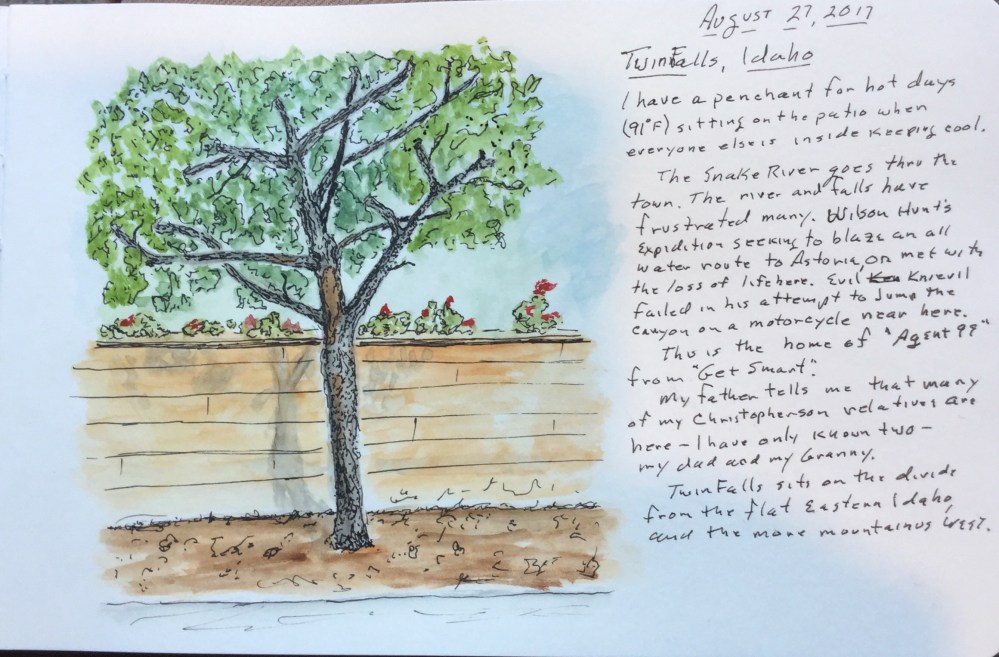 August 27, 2017
Twin Falls, Idaho
I have a penchant for hot days
(91°F) sitting on the patio when
everyone else is inside keeping cool.
The Snake River goes thru the
town. The river and falls have
frustrated many. Wilson Hunt's
Expidition seeking to blaze an all
water route to Astoria, OR met with
the loss of life here. Evil Knievil
failed in his attempt to Jump the
canyon on a motorcycle near here.
This is the home of "Agent 99"
from "Get Smart".
My father tells me that many
of my Christopherson relatives are
here - I have only known two -
my dad and my Granny.
Twin Falls sits on the divide
from the flat Eastern Idaho,
and the more mountainus West.